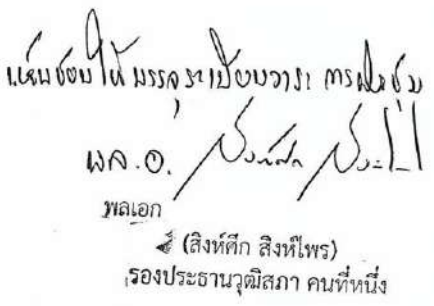 เห็นชอบให้บรรจุระเบียบวาระการประชุม
พล.อ.
พลเอก
(สิงห์ศึก สิงห์ไพร)
รองประธานวุฒิสภา คนที่หนึ่ง